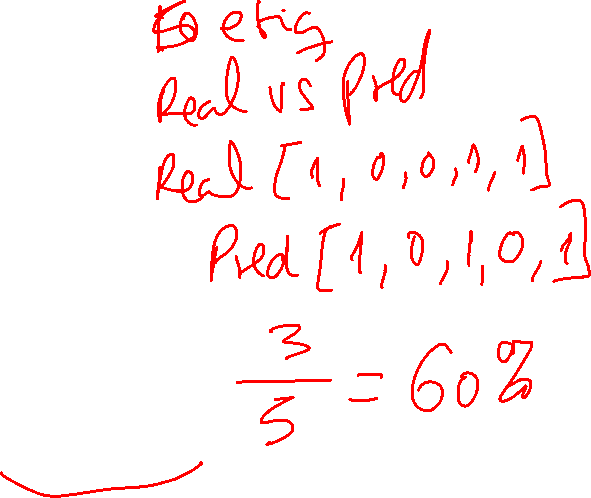 etiq
Real vs Pred
Real [1, 0, 0, 1, 1]
Pred [1, 0, 1, 0, 1]
3
5 = 60%